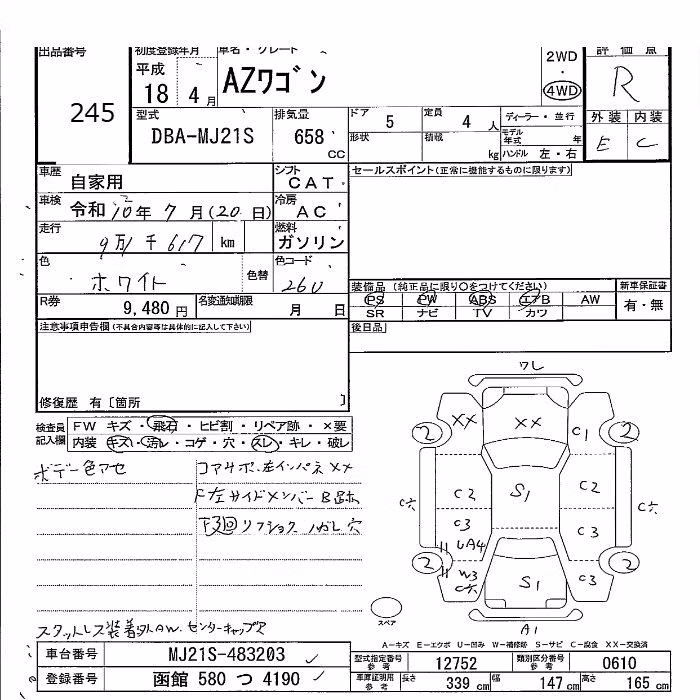 出品番号
245
初度登録年月
平成
18 4 月
車名・グレード
AZワゴン
2WD
・
4WD
評価点
R
型式
DBA-MJ21S
排気量
658
CC
ドア 5
定員 4 人
ディーラー・並行
形状
積載
kg
モデル年式 年
ハンドル 左・右
外装 内装
E C
車歴
自家用
シフト
CAT
セールスポイント(正常に機能するものに限ります)
車検
令和 10年 7月(20日)
冷房
AC
走行
9万1千617 km
燃料
ガソリン
色
ホワイト
色替
色コード
26U
装備品 (純正品に限り○をつけてください)
新車保証書
PS PW ABS エアB AW
SR ナビ TV カワ
有・無
R券
9,480 円
名変通知期限
月 日
後日品
注意事項申告欄(不具合内容等は具体的に記入して下さい)
修復歴 有〔箇所 〕
検査員記入欄
FW キズ・飛石・ヒビ割・リペア跡・×要
内装 キズ・汚レ・コゲ・穴・スレ・キレ・破レ
ボデー色アセ
コアサポ.左インパネXX
F左サイドメンバー
リフショック
穴
スタットレス装着
AW.センターキャップ欠
ワレ
XX XX C1
2 2
C穴 C2 S1 C2 C穴
C3 C3
UA4
2 2
W3 C穴 S1 C3
A1
スペア
A=キズ E=エクボ U=凹み W=補修跡 S=サビ C=腐食 XX=交換済
車台番号
MJ21S-483203
登録番号
函館 580 つ 4190
型式指定番号 参考
12752
類別区分番号 参考
0610
車庫証明用 参考
長さ 339 cm
幅 147 cm
高さ 165 cm